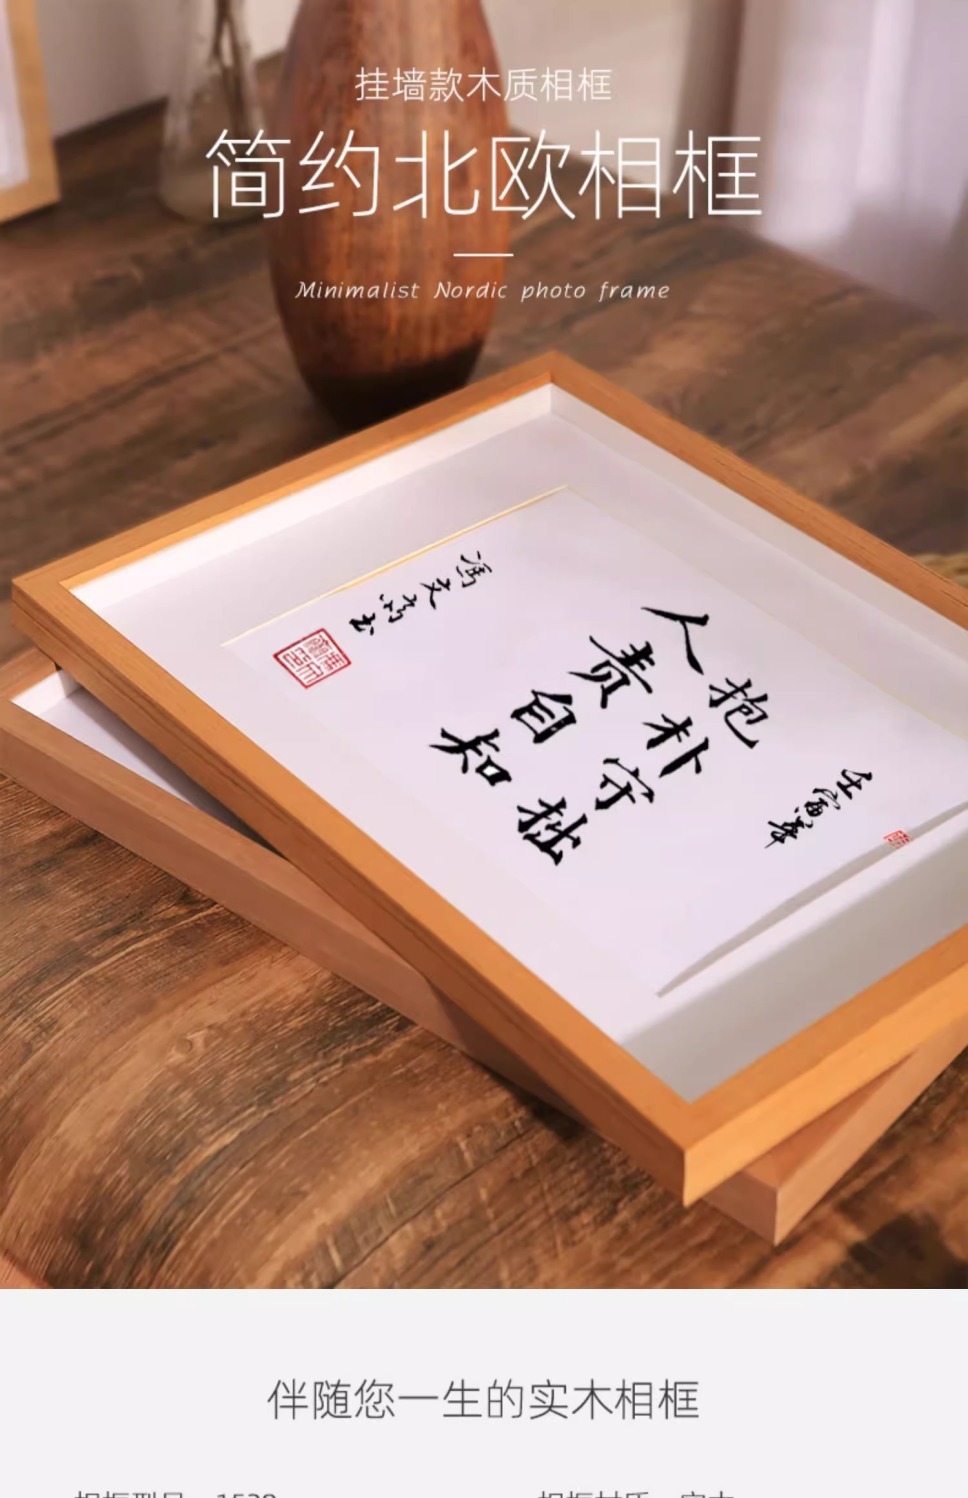 挂墙款木质相框
简约北欧相框
Minimalist Nordic photo frame
抱朴守拙
人责自知
伴随您一生的实木相框